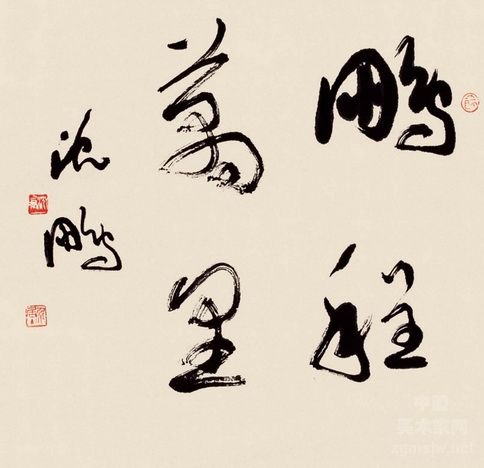 鹏程
萬里
沈鹏
中国
美术家网
zgmsjw.net